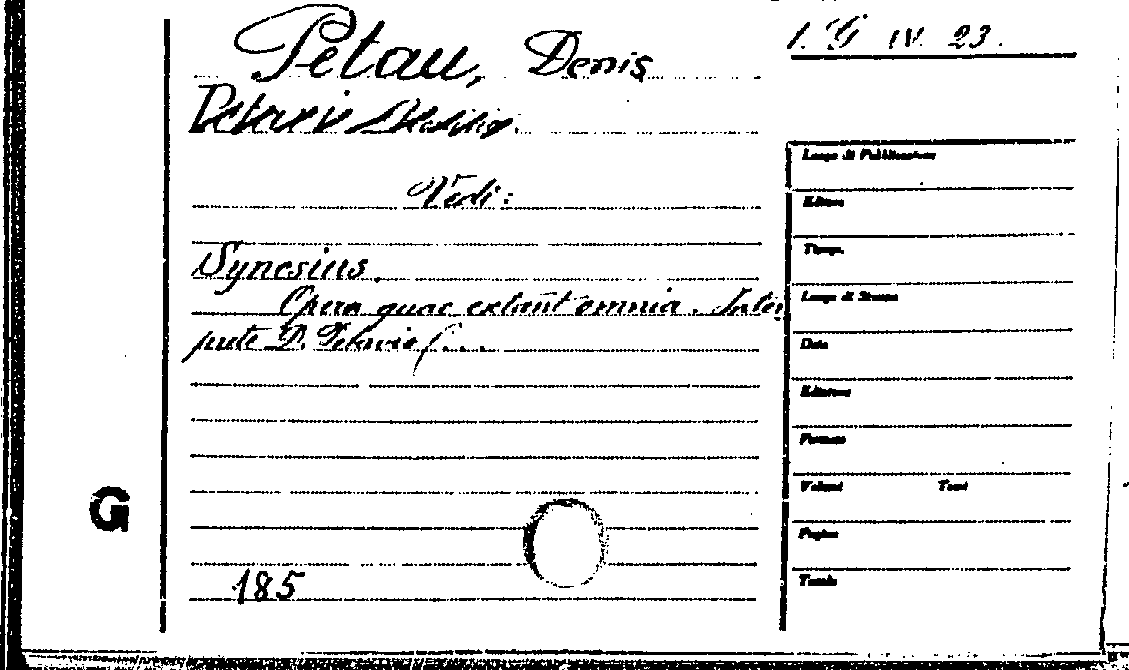 Petau, Denis
1. G IV. 23.
Vedi:
Synesius.
Opera quae extant omnia. Inter
prete D. Petavio (...
G
185
Luogo di Pubblicazione
Editore
Tipogr.
Luogo di Stampa
Data
Edizione
Formato
Volumi Tomi
Pagine
Tavole